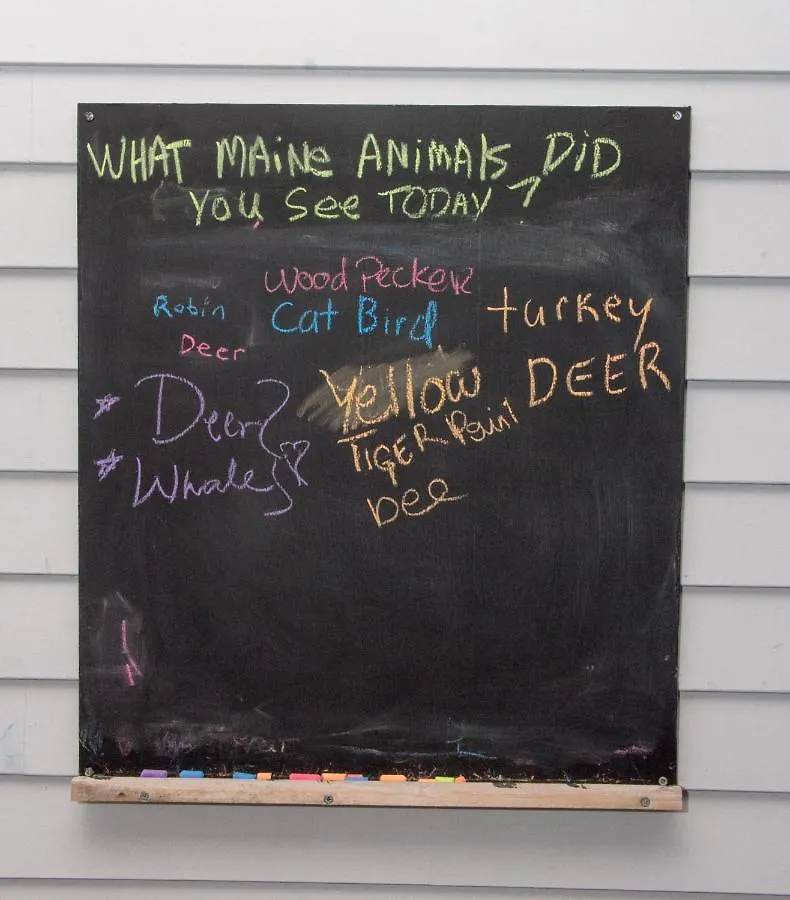 WHAT MAINE ANIMALS DID
YOU SEE TODAY ?
Wood Pecker
Robin
Cat Bird
turkey
Deer
Yellow
DEER
Deer
TIGER
Whales
Dee